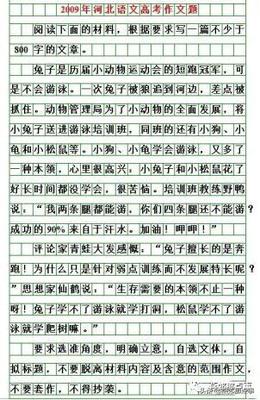 2009年河北语文高考作文题
阅读下面的材料，根据要求写一篇不少于
800字的文章。
兔子是历届小动物运动会的短跑冠军，可
是不会游泳。一次兔子被狼追到河边，差点被
抓住。动物管理局为了小动物的全面发展，将
小兔子送进游泳培训班，同班的还有小狗、小
龟和小松鼠等。小狗、小龟学会游泳，又多了
一种本领，心里很高兴；小兔子和小松鼠花了
好长时间都没学会，很苦恼。培训班教练野鸭
说：“我两条腿都能游，你们四条腿还不能游？
成功的90%来自于汗水。加油！呷呷！”
评论家青蛙大发感慨：“兔子擅长的是奔
跑！为什么只是针对弱点训练而不发展特长呢？
”思想家仙鹤说：“生存需要的本领不止一种
呀！兔子学不了游泳就学打洞，松鼠学不了游
泳就学爬树嘛。”
要求选准角度，明确立意，自选文体，自
拟标题，不要脱离材料内容及含意的范围作文，
不要套作，不得抄袭。